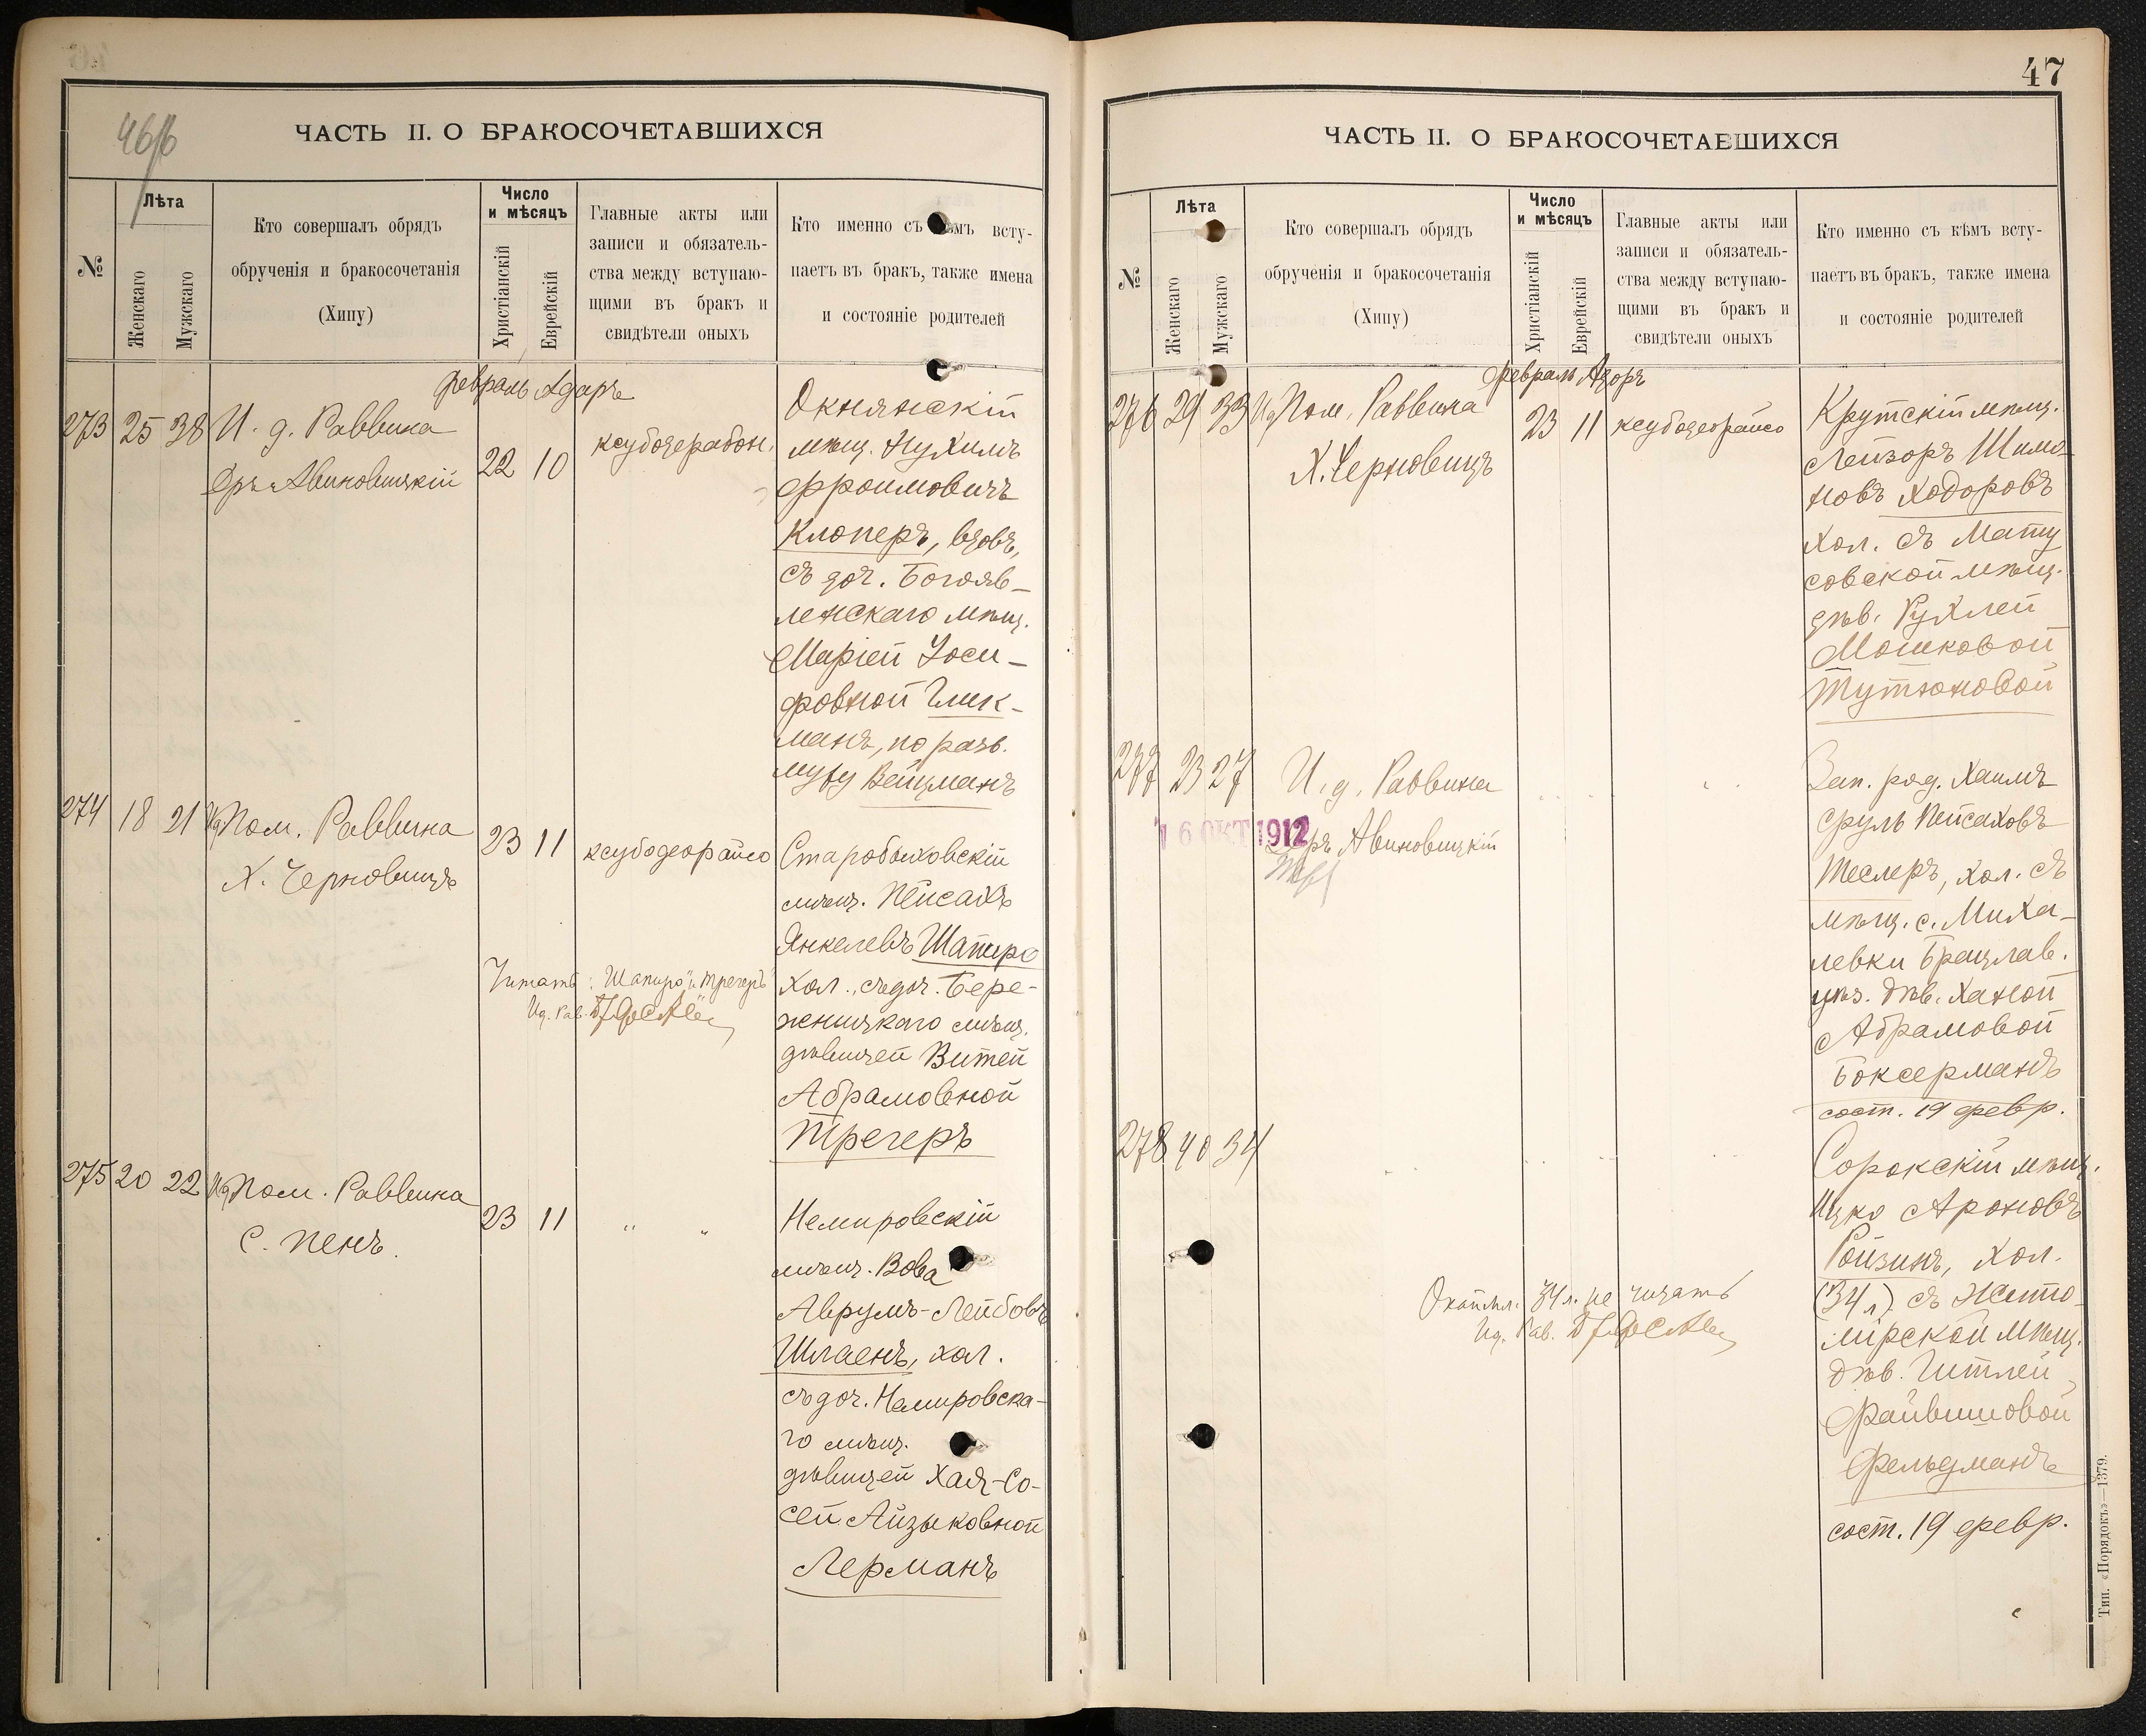 46/б
ЧАСТЬ II. О БРАКОСОЧЕТАВШИХСЯ
№
Лѣта
Женскаго
Мужскаго
Кто совершалъ обрядъ
обрученія и бракосочетанія
(Хипу)
Число
и мѣсяцъ
Христіанскій
Еврейскій
Главные акты или
записи и обязатель-
ства между вступаю-
щими въ бракъ и
свидѣтели оныхъ
Кто именно съ кѣмъ всту-
паетъ въ бракъ, также имена
и состояніе родителей
Февраль Адаръ
273 25 38 И. д. Раввина
Д-ръ Авиновицкій
22 10
Окнянскій
мѣщ. Нухимъ
Фроимовичъ
Клоперъ, вдов.,
съ доч. Богояв-
ленскаго мѣщ.
Маріей Іоси-
фовной Глик-
манъ, по разв.
мужу Вейцманъ
274 18 21 Ид Пом. Раввина
Х. Черновицъ
23 11 ксубодеорайсо
Старобыховскій
мѣщ. Пейсахъ
Янкелевъ Шапиро
хол., съ доч. Бере-
жницкаго мѣщ.
дѣвицей Витей
Абрамовной
Трегеръ
Читать: „Шапиро" и „Трегеръ"
Ид. Рав.
275 20 22 Ид Пом. Раввина
С. Пенъ.
23 11 " "
Немировскій
мѣщ. Вова
Аврумъ-Лейбовъ
Шлаенъ, хол.
съ доч. Немировска-
го мѣщ.
дѣвицей Хая-Со-
сей Айзыковной
Лерманъ
47
ЧАСТЬ II. О БРАКОСОЧЕТАВШИХСЯ
№
Лѣта
Женскаго
Мужскаго
Кто совершалъ обрядъ
обрученія и бракосочетанія
(Хипу)
Число
и мѣсяцъ
Христіанскій
Еврейскій
Главные акты или
записи и обязатель-
ства между вступаю-
щими въ бракъ и
свидѣтели оныхъ
Кто именно съ кѣмъ всту-
паетъ въ бракъ, также имена
и состояніе родителей
Февраль Адаръ
276 29 33 Ид Пом. Раввина
Х. Черновицъ
23 11 ксубодеорайсо
Крутскій мѣщ.
Лейзоръ Шимо-
новъ Ходоровъ
хол. съ Мату
совской мѣщ.
дѣв. Рухлей
Мошковой
Тутюновой
277 23 27 И. д. Раввина
Д-ръ Авиновицкій
16 ОКТ 1912
Зап. ряд. Хаимъ
Сруль Пейсаховъ
Теслеръ, хол. съ
мѣщ. с. Миха-
левки Брацлав.
уѣз. дѣв. Ханой
Абрамовой
Боксерманъ
сост. 19 февр.
278 40 34
Сорокскій мѣщ.
Ицко Ароновъ
Ройзинъ, хол.
(34 л) съ Жито-
мірской мѣщ.
дѣв. Гитлей
Файвишовой
Фельдманъ
сост. 19 февр.
34 л. не читать
Ид. Рав.
Тип. «Порядокъ»—1379.